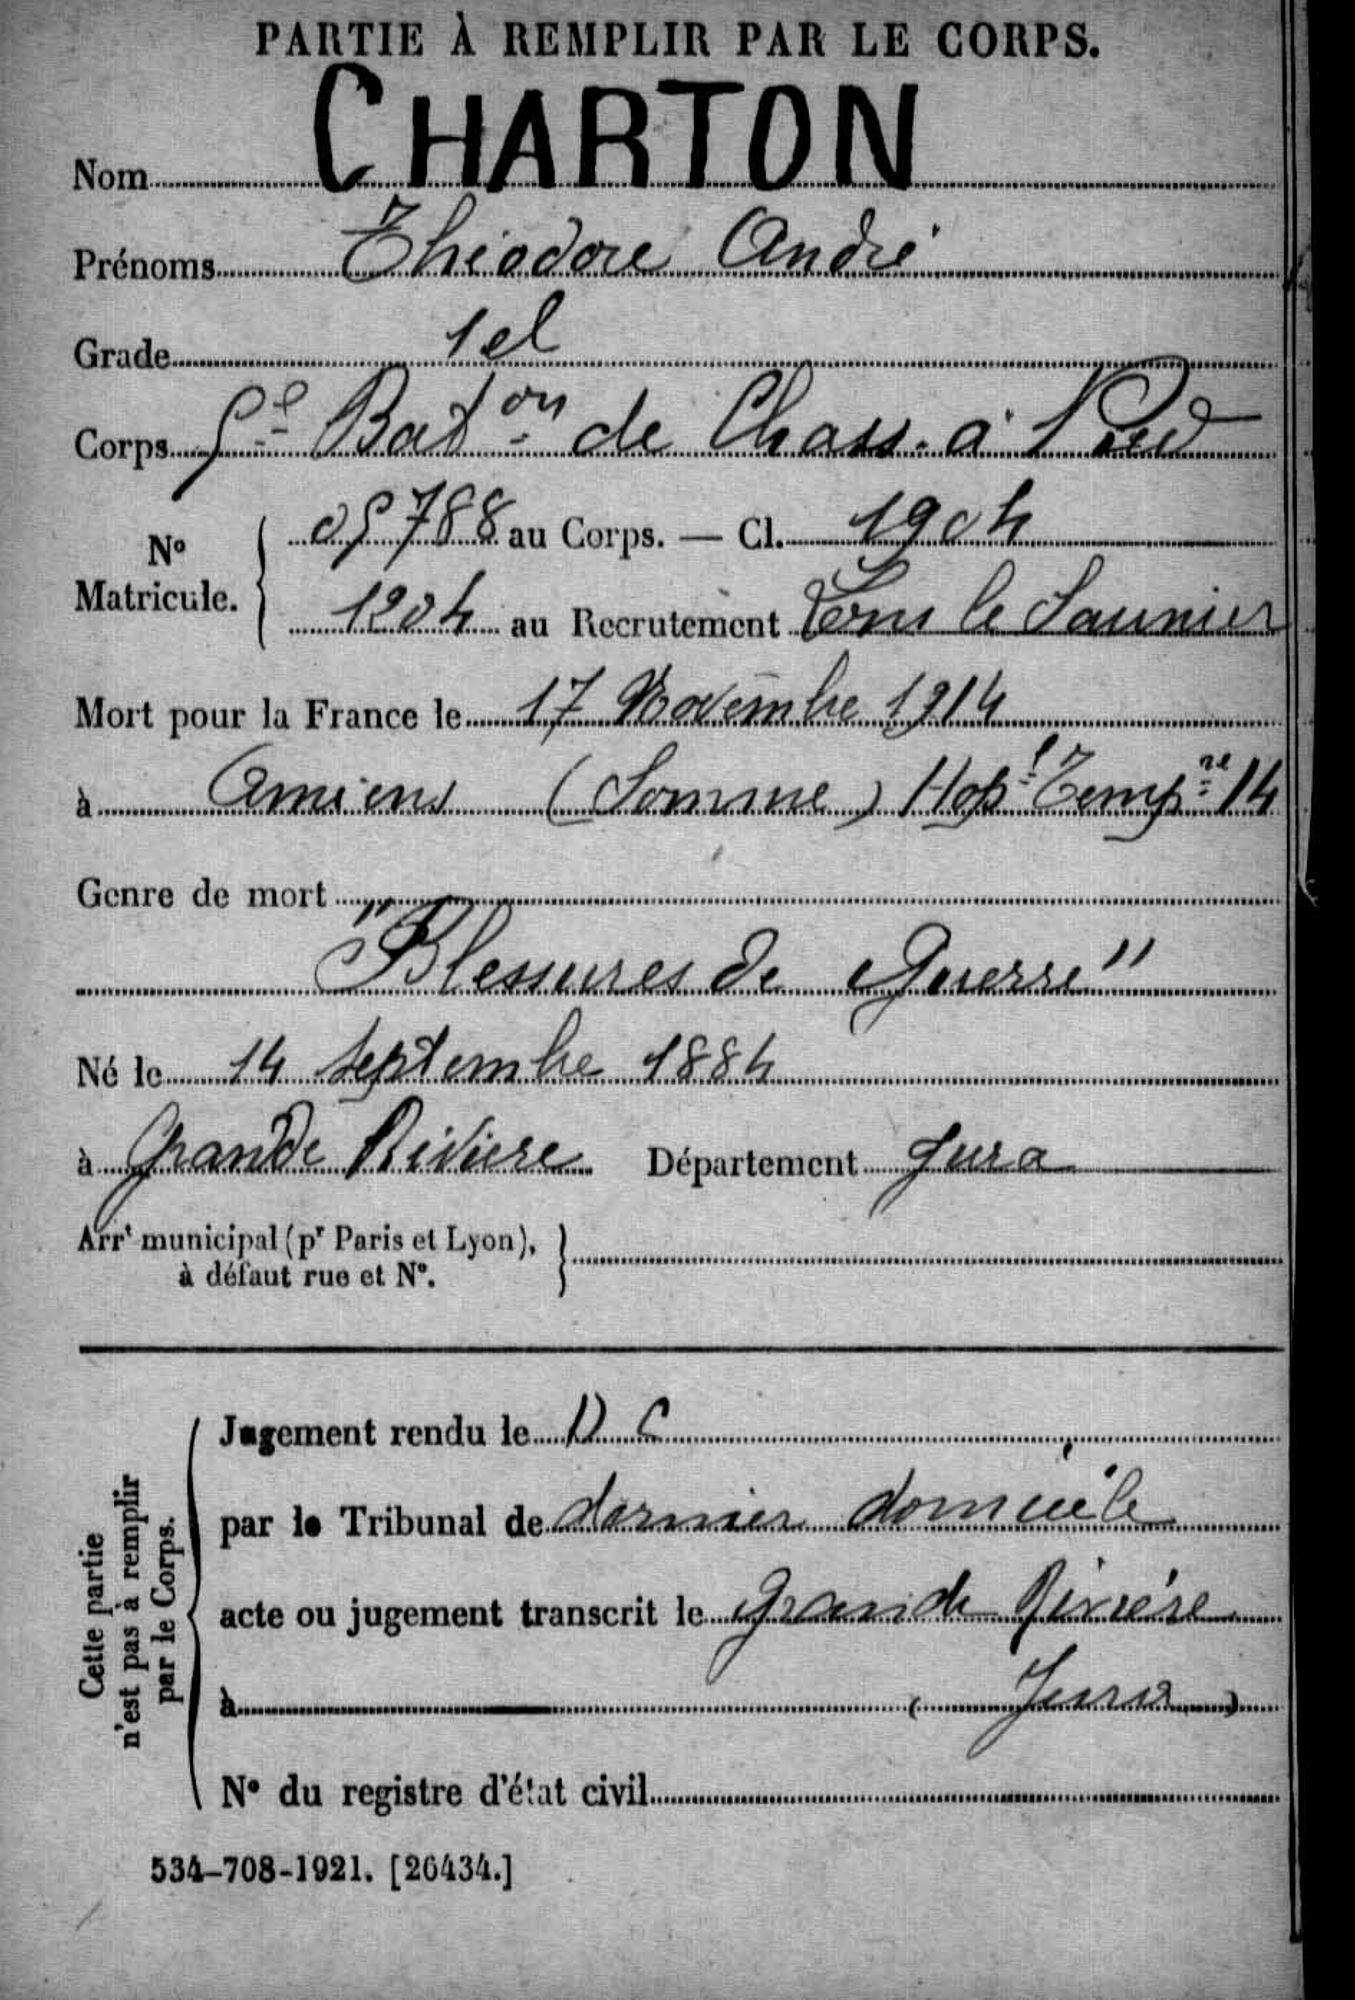 PARTIE À REMPLIR PAR LE CORPS.
Nom CHARTON
Prénoms Théodore André
Grade 1el
Corps 5e Baton de Chass. à Pied
No Matricule. 05788 au Corps. — Cl. 1904
1204 au Recrutement Lons le Saunier
Mort pour la France le 17 Novembre 1914
à Amiens (Somme) Hopl Tempre 14
Genre de mort
"Blessures de Guerre"
Né le 14 Septembre 1884
à Grande Rivière Département Jura
Arrt municipal (pr Paris et Lyon),
à défaut rue et No.
Cette partie
n'est pas à remplir
par le Corps.
Jugement rendu le D C
par le Tribunal de dernier domicile
acte ou jugement transcrit le Grande Rivière
à (Jura)
No du registre d'état civil
534-708-1921. [26434.]